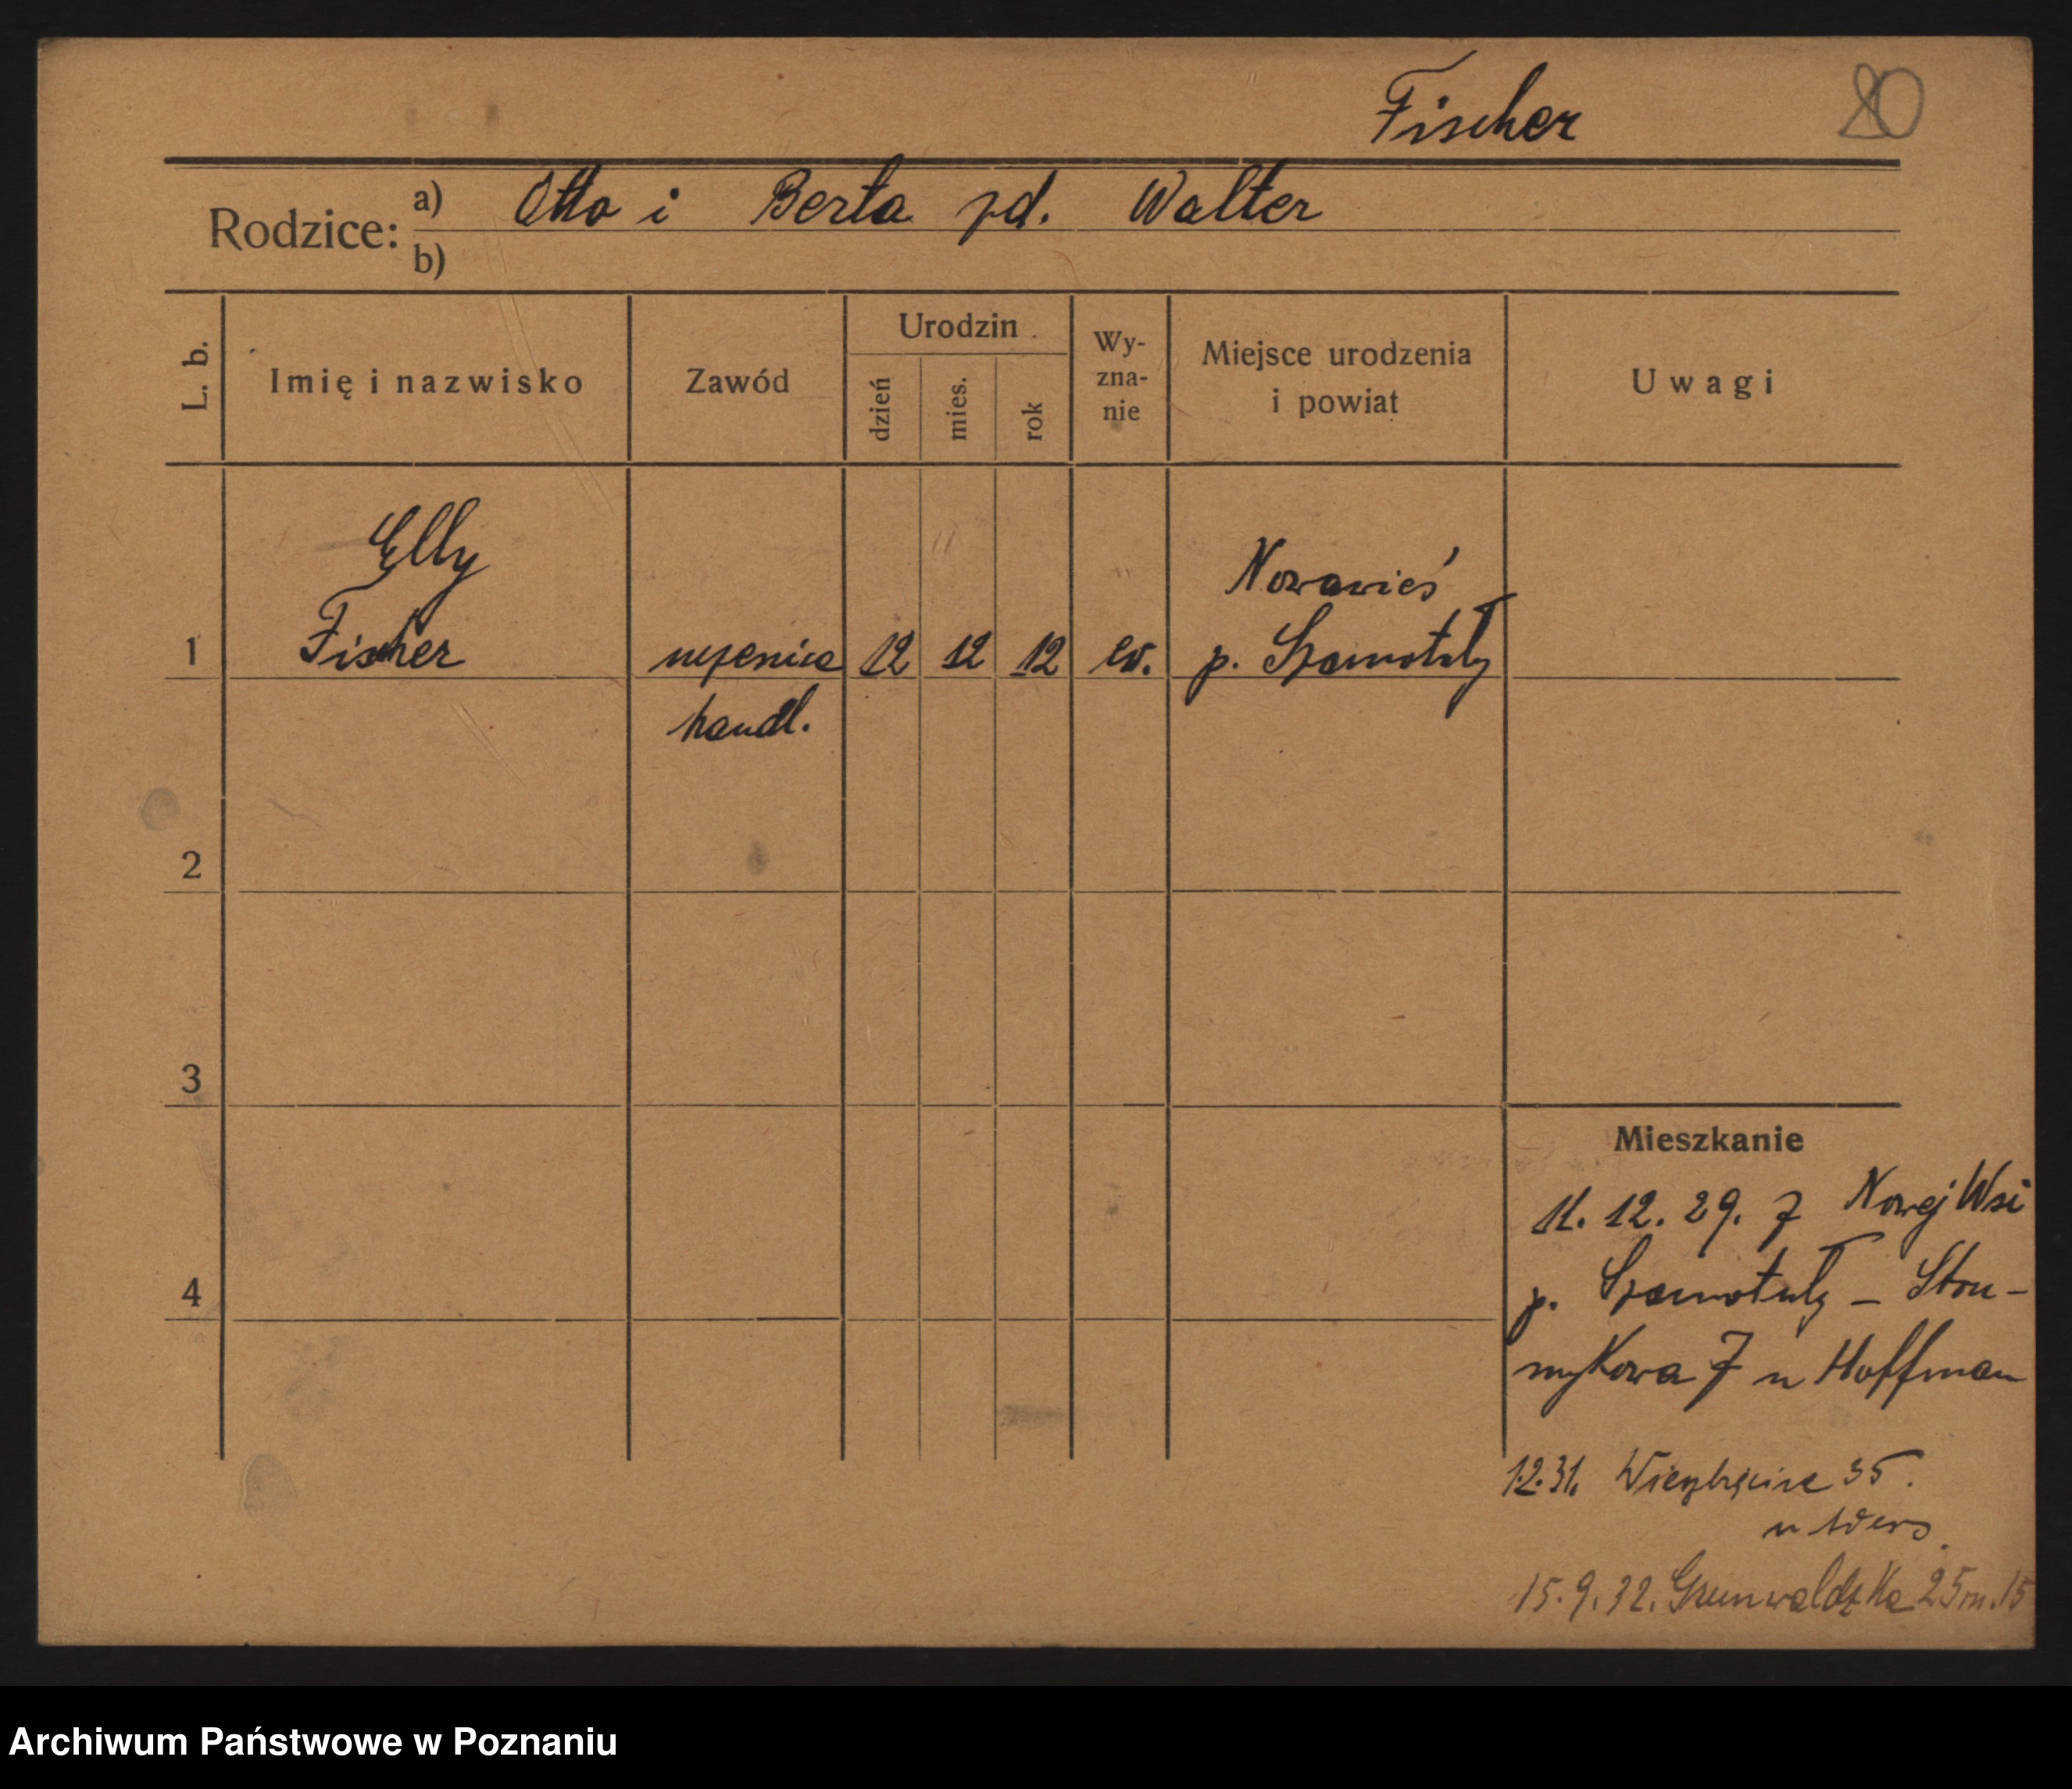 Fischer 80
Rodzice: a) Otto i Berta zd. Walter
b)
L. b.
Imię i nazwisko
Zawód
Urodzin
dzień
mies.
rok
Wy-
zna-
nie
Miejsce urodzenia
i powiat
Uwagi
Elly
Fischer
Nowawieś
1 uczenica 12 12 12 ew. p. Szamotuły
handl.
2
3
4
Mieszkanie
11. 12. 29. z Nowej Wsi
p. Szamotuły – Stru-
mykowa 7 u Hoffman
1.2.31. Wierzbięcice 35.
u
15.9.32. Grunwaldzka 25 m. 15
Archiwum Państwowe w Poznaniu